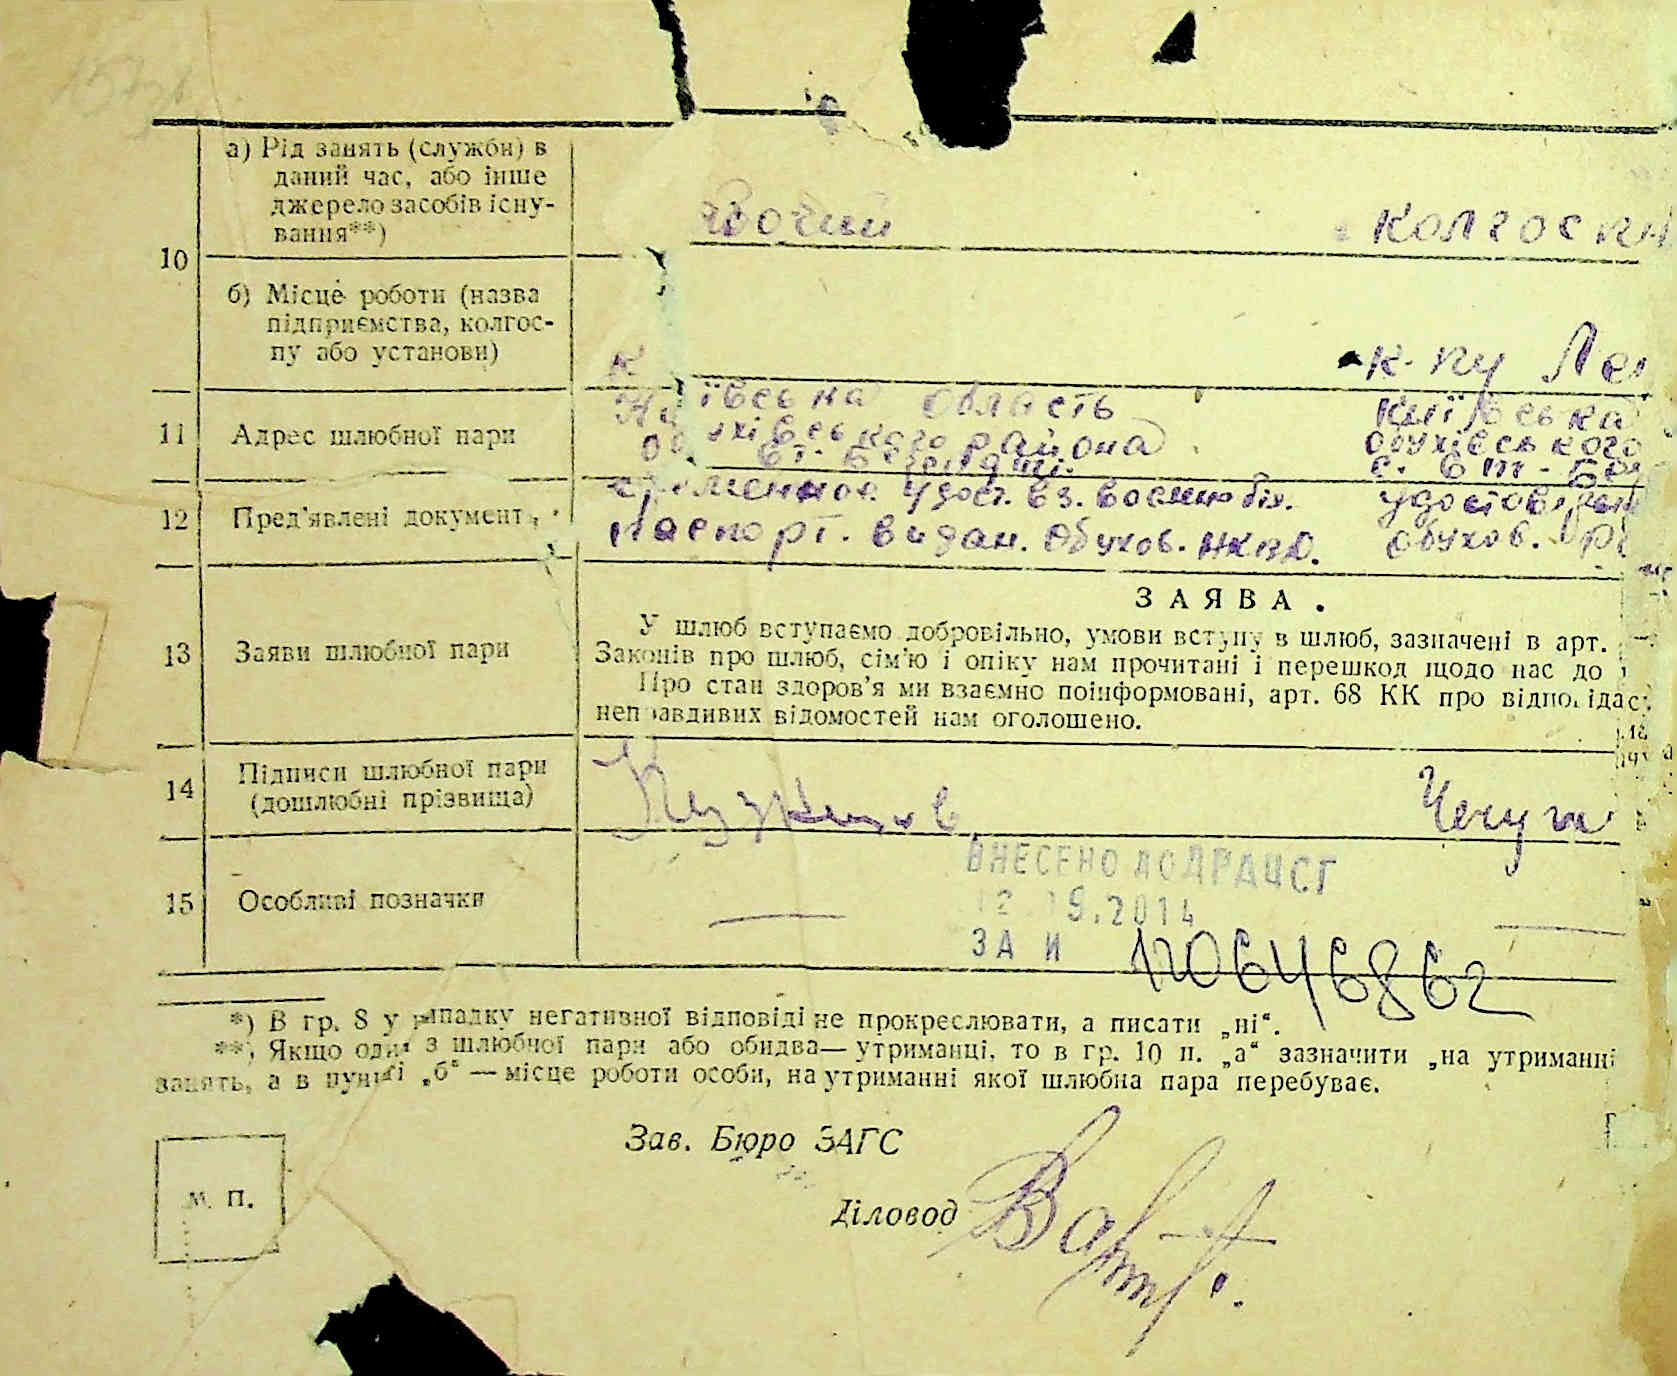 10
а) Рід занять (служби) в
даний час, або інше
джерело засобів існу-
вання**)
бочий
колгоспн
б) Місце роботи (назва
підприємства, колгос-
пу або установи)
к
к-пу Лен
11
Адрес шлюбної пари
ївська область
Київська
хівського района
Обухівського
12
Пред'явлені документ
удостовірен
паспорт. видан. Обухов. НКВД.
Обухов. Р
13
Заяви шлюбної пари
ЗАЯВА.
У шлюб вступаємо добровільно, умови вступу в шлюб, зазначені в арт.
Законів про шлюб, сім'ю і опіку нам прочитані і перешкод щодо нас до
Про стан здоров'я ми взаємно поінформовані, арт. 68 КК про відповідас
неправдивих відомостей нам оголошено.
14
Підписи шлюбної пари
(дошлюбні прізвища)
Кузнецов
15
Особливі позначки
ВНЕСЕНО ДО ДРАЦСГ
2014
ЗА И
*) В гр. 8 у випадку негативної відповіді не прокреслювати, а писати „ні“.
**) Якщо одна з шлюбної пари або обидва—утриманці, то в гр. 10 п. „а“ зазначити „на утриманні
занять, а в пункті „б“ — місце роботи особи, на утриманні якої шлюбна пара перебуває.
Зав. Бюро ЗАГС
м. п.
Діловод